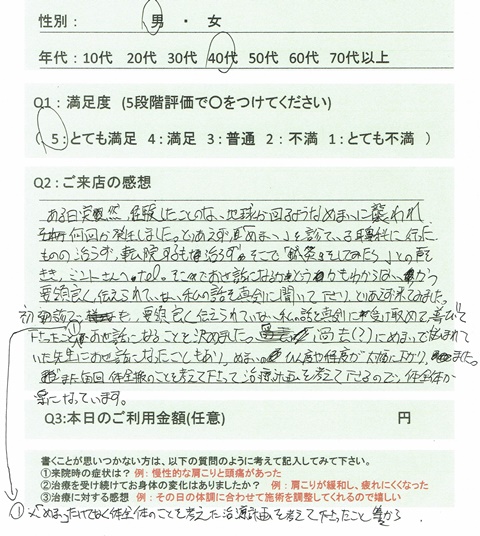 性別： 男 ・ 女
年代：10代 20代 30代 40代 50代 60代 70代以上
Q1：満足度 (5段階評価で〇をつけてください)
( 5：とても満足 4：満足 3：普通 2：不満 1：とても不満 )
Q2：ご来店の感想
ある日突然、経験したことのない、地球が回るようなめまいに襲われ
何回か発生しました。とりあえず「めまい」を診て
ものの治らず、転院するも治らず。そこで「鍼灸をしてみたら」との声を
きき、ミントさんへtel。そこでお世話になるかどうかもわからない、かつ
要領良く伝えられていない私の話を真剣に聞いて下さり、とりあえず来てみました。
初 ても、要領良く伝えられない私の話を真剣に受け取めて
下さったこと①お世話になることを決めました。過去(？)にめまいで悩まれて
いた先生にお世話になったこともあり、めまいの
また毎回体全体のことを考えて下さって治療計画を考えて下さるので、体全体が
楽になっています。
Q3:本日のご利用金額(任意) 円
書くことが思いつかない方は、以下の質問のように考えて記入してみて下さい。
①来院時の症状は？ 例：慢性的な肩こりと頭痛があった
②治療を受け続けてお身体の変化はありましたか？ 例：肩こりが緩和し、疲れにくくなった
③治療に対する感想 例：その日の体調に合わせて施術を調整してくれるので嬉しい
①：「めまい」だけでなく体全体のことを考えた治療計画を考えて下さったこと